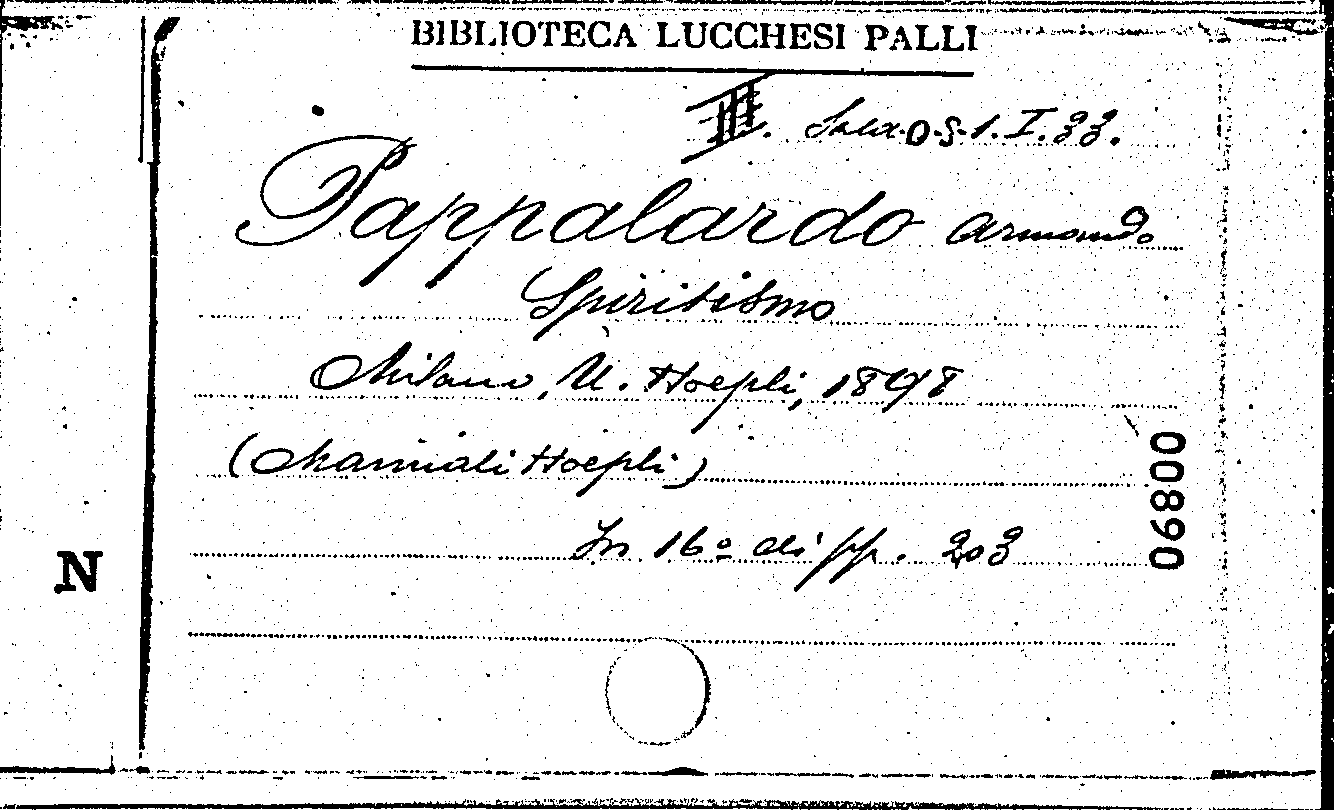 BIBLIOTECA LUCCHESI PALLI
III. Sala. OS. 1. I. 33.
Pappalardo Armando
Spiritismo
Milano, U. Hoepli, 1898
(Manuali Hoepli)
In 16º di pp. 203
008090
N